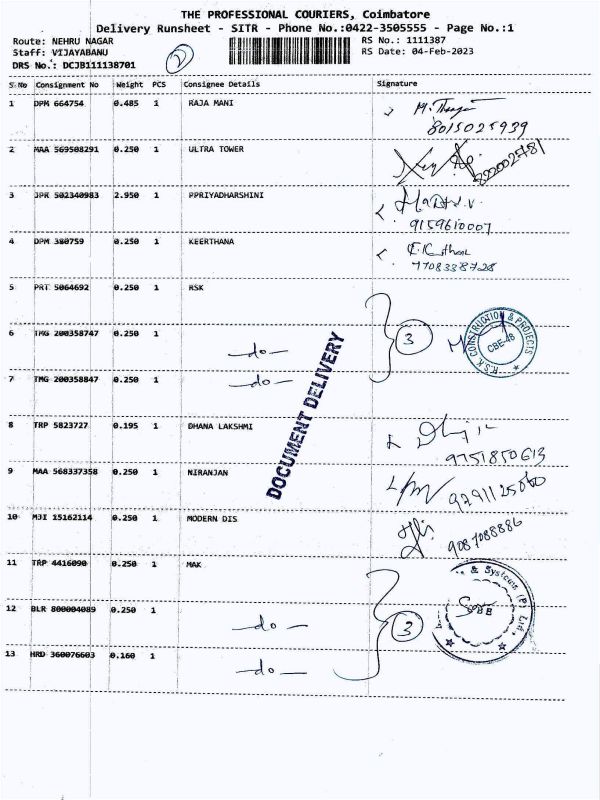 THE PROFESSIONAL COURIERS, Coimbatore
Delivery Runsheet - SITR - Phone No.:0422-3505555 - Page No.:1
Route: NEHRU NAGAR
RS No.: 1111387
Staff: VIJAYABANU
RS Date: 04-Feb-2023
DRS No.: DCJB111138701
2
S No Consignment No Weight PCS Consignee Details Signature
1 DPM 664754 0.485 1 RAJA MANI
8015025939
2 MAA 569508291 0.250 1 ULTRA TOWER
3 JPR 502340983 2.950 1 PPRIYADHARSHINI
9159610007
4 DPM 380759 0.250 1 KEERTHANA
7708338728
5 PRT 5064692 0.250 1 RSK
6 TMG 200358747 0.250 1
-do-
3
K.S.K CONSTRUCTION & PROJECTS
CBE-48
7 TMG 200358847 0.250 1 -do-
DOCUMENT DELIVERY
8 TRP 5823727 0.195 1 DHANA LAKSHMI
9751850613
9 MAA 568337358 0.250 1 NIRANJAN
10 MJI 15162114 0.250 1 MODERN DIS
9087088886
11 TRP 4416090 0.250 1 MAK
& Systems (P) Ltd.,
12 BLR 800004089 0.250 1 -do-
3
13 HRD 360076603 0.160 1 -do-